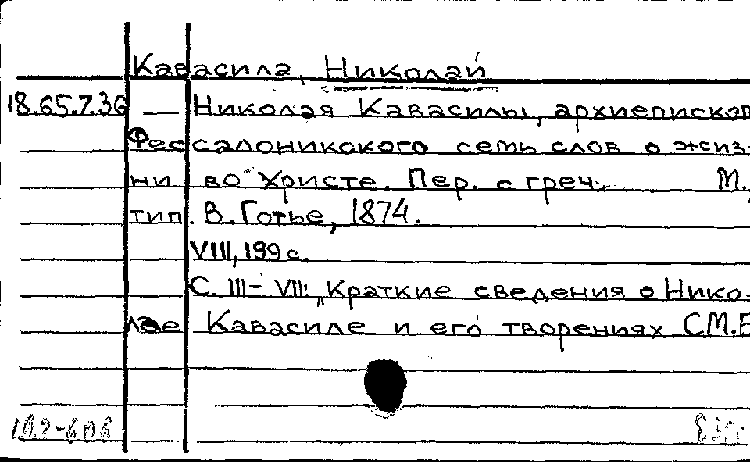 Кавасила, Николай
18.65.7.36 — Николая Кавасилы, архиепископ
Фессалоникского семь слов о жиз-
ни во Христе. Пер. с греч. М.,
тип. В. Готье, 1874.
VIII, 199 с.
С. III-VII: „Краткие сведения о Нико-
лае Кавасиле и его творениях С.М.Б